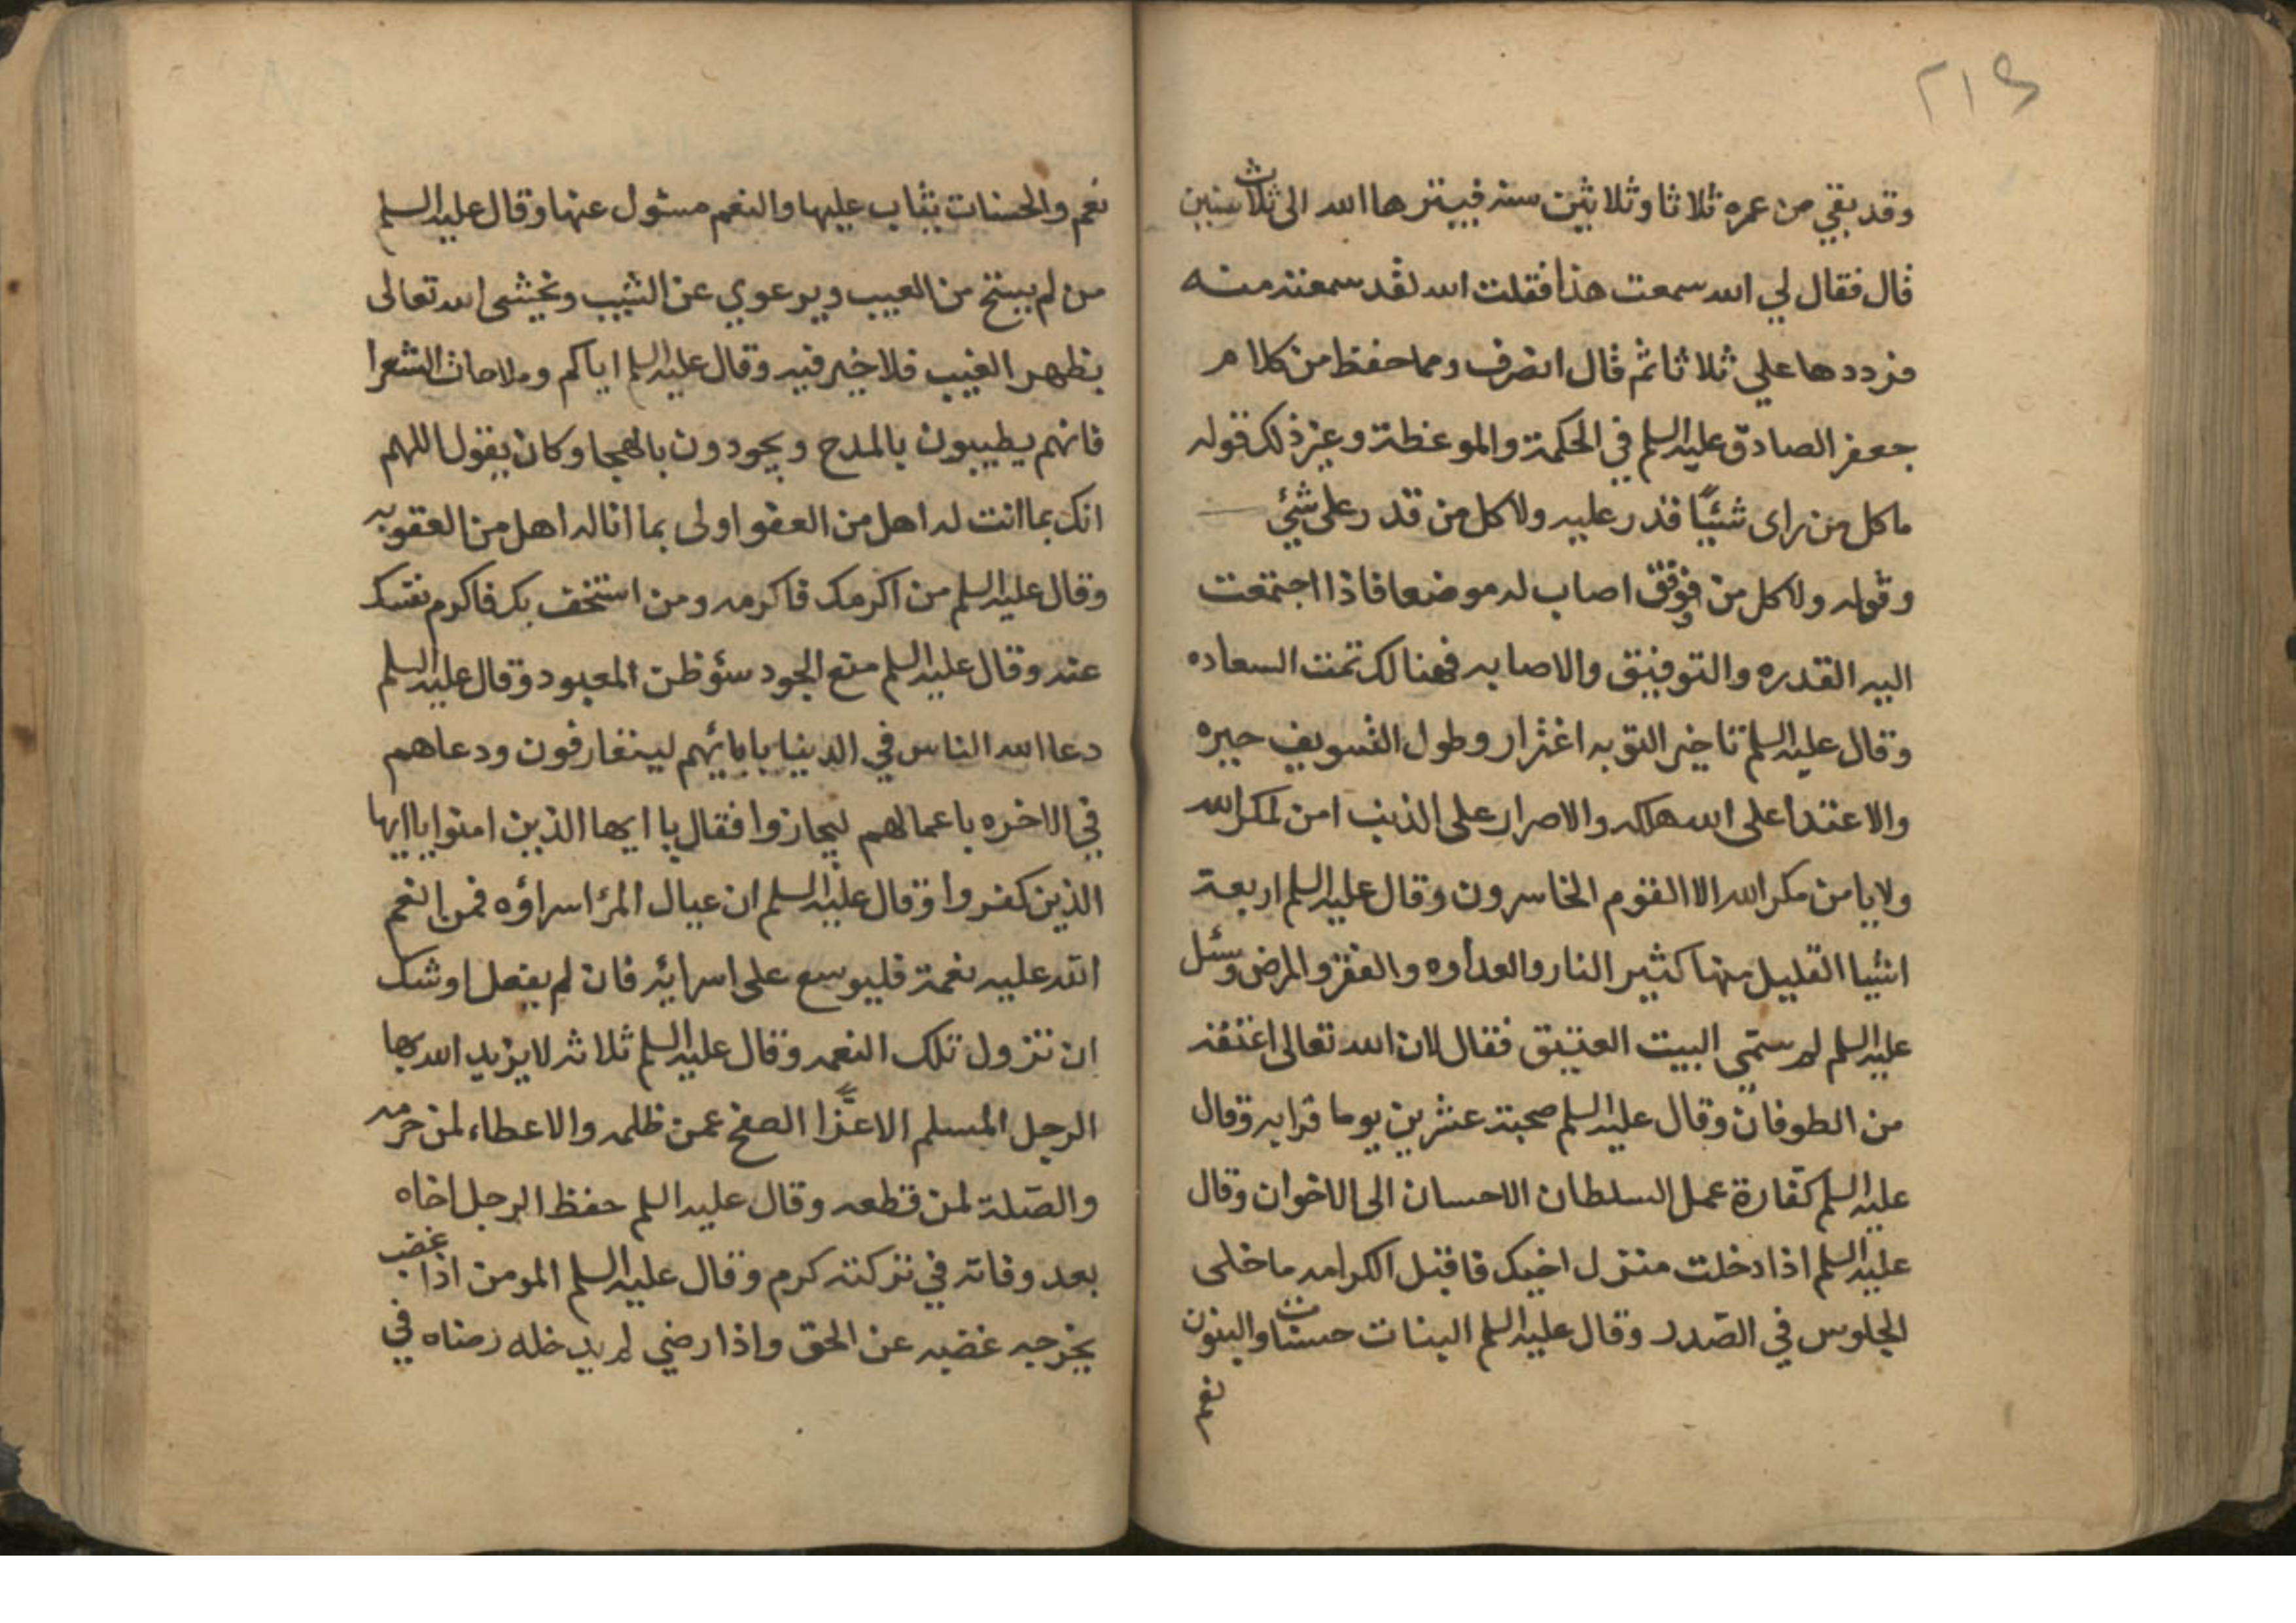 ٢١٤
وقد بقي من عمره ثلاثا وثلاثين سنه فيبترها الله الى ثلاث سنين
قال فقال لي الله سمعت هذا فقلت الله لقد سمعته منه
فرددها علي ثلاثا ثم قال انصرف ومما حفظ من كلام
جعفر الصادق عليه السلم في الحكمة والموعظة وغير ذلك قوله
ما كل من راى شيئا قدر عليه ولا كل من قدر على شئ
وقوله ولا كل من فوفق اصاب له موضعا فاذا اجتمعت
اليه القدره والتوفيق والاصابه فهنالك تمت السعاده
وقال عليه السلم تاخير التوبه اغترار وطول التسويف حيره
والاعتدا على الله هلكه والاصرار على الذنب امن لمكر الله
ولا يامن مكر الله الا القوم الخاسرون وقال عليه السلم اربعة
اشيا القليل منها كثير النار والعداوه والفقر والمرض وسئل
عليه السلم لم ستمي البيت العتيق فقال لان الله تعالى اعتقه
من الطوفان وقال عليه السلم صحبة عشرين يوما قرابه وقال
عليه السلم كفارة عمل السلطان الاحسان الى الاخوان وقال
عليه السلم اذا دخلت منزل اخيك فاقبل الكرامه ما خلى
الجلوس في الصدر وقال عليه السلم البنات حسنات والبنون
نعم
نعم والحسنات يثاب عليها والنعم مسئول عنها وقال عليه السلم
من لم يستح من العيب ويرعوي عن الشيب ويخشى الله تعالى
بظهر الغيب فلا خير فيه وقال عليه السلم اياكم وملاحات الشعرا
فانهم يطيبون بالمدح ويجودون بالهجا وكان يقول اللهم
انك بما انت له اهل من العفو اولى بما انا له اهل من العقوبه
وقال عليه السلم من اكرمك فاكرمه ومن استخف بك فاكرم نفسك
عنه وقال عليه السلم منع الجود سئو ظن المعبود وقال عليه السلم
دعا الله الناس في الدنيا بابائهم ليتعارفون ودعاهم
في الاخره باعمالهم ليجازوا فقال يا ايها الذين امنوا يا ايها
الذين كفروا وقال عليه السلم ان عيال المرا اسراؤه فمن انعم
الله عليه نعمة فليوسع على اسرايه فان لم يفعل اوشك
ان تزول تلك النعمه وقال عليه السلم ثلاثه لا يزيد الله بها
الرجل المسلم الا عزا الصفح عمن ظلمه والاعطاء لمن حرمه
والصلة لمن قطعه وقال عليه السلم حفظ الرجل اخاه
بعد وفاته في تركته كرم وقال عليه السلم المومن اذا غضب
يخرجه غضبه عن الحق واذا رضي لم يدخله رضاه في